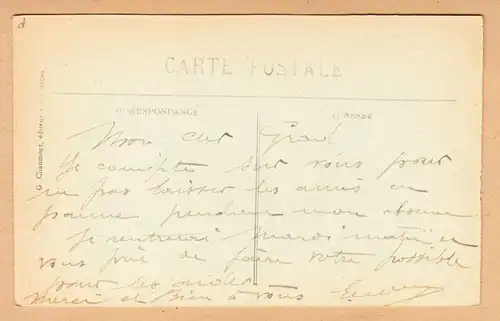 d
CARTE POSTALE
CORRESPONDANCE
ADRESSE
G. Ciaumont, éditeur
Mon cher
Je compte sur vous pour
ne pas laisser les amis en
panne pendant mon absence
Je rentrerai mardi matin et
vous prie de faire votre possible
pour les aider
Merci et bien à vous